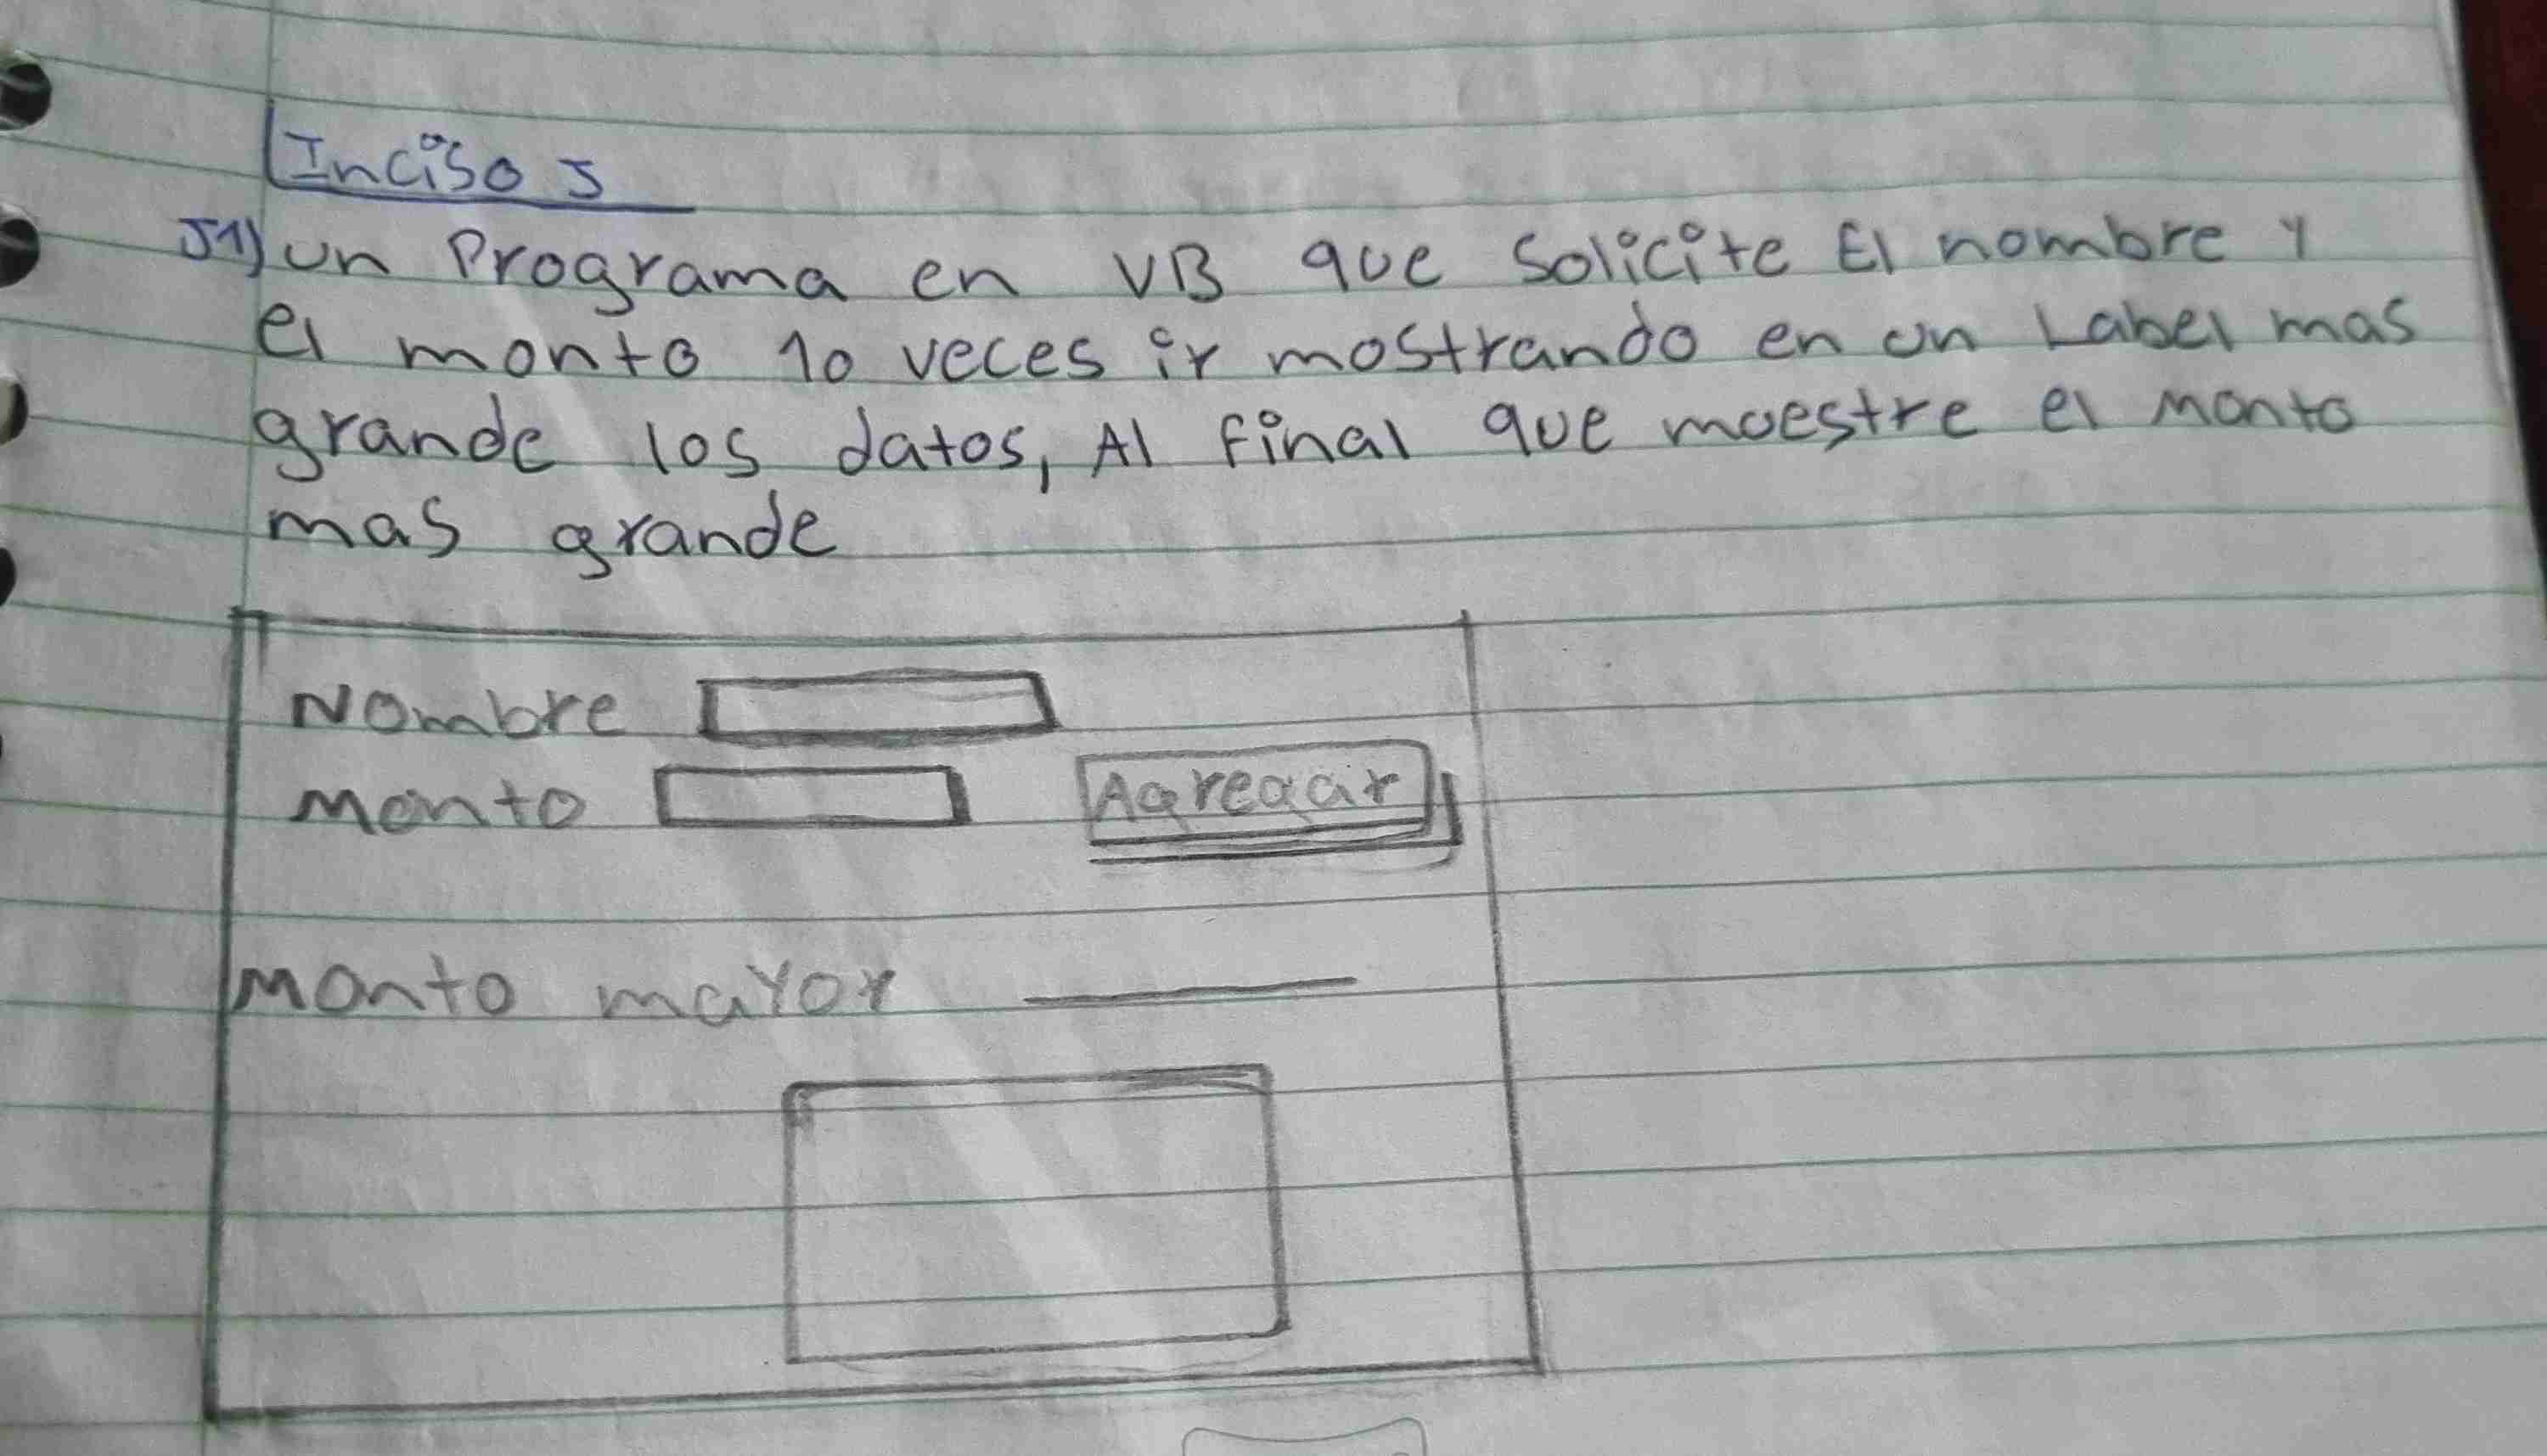 Inciso 5
51) un Programa en VB que solicite El nombre y
el monto 10 veces ir mostrando en un Label mas
grande los datos, Al final que muestre el monto
mas grande
Nombre
monto Agregar
monto mayor